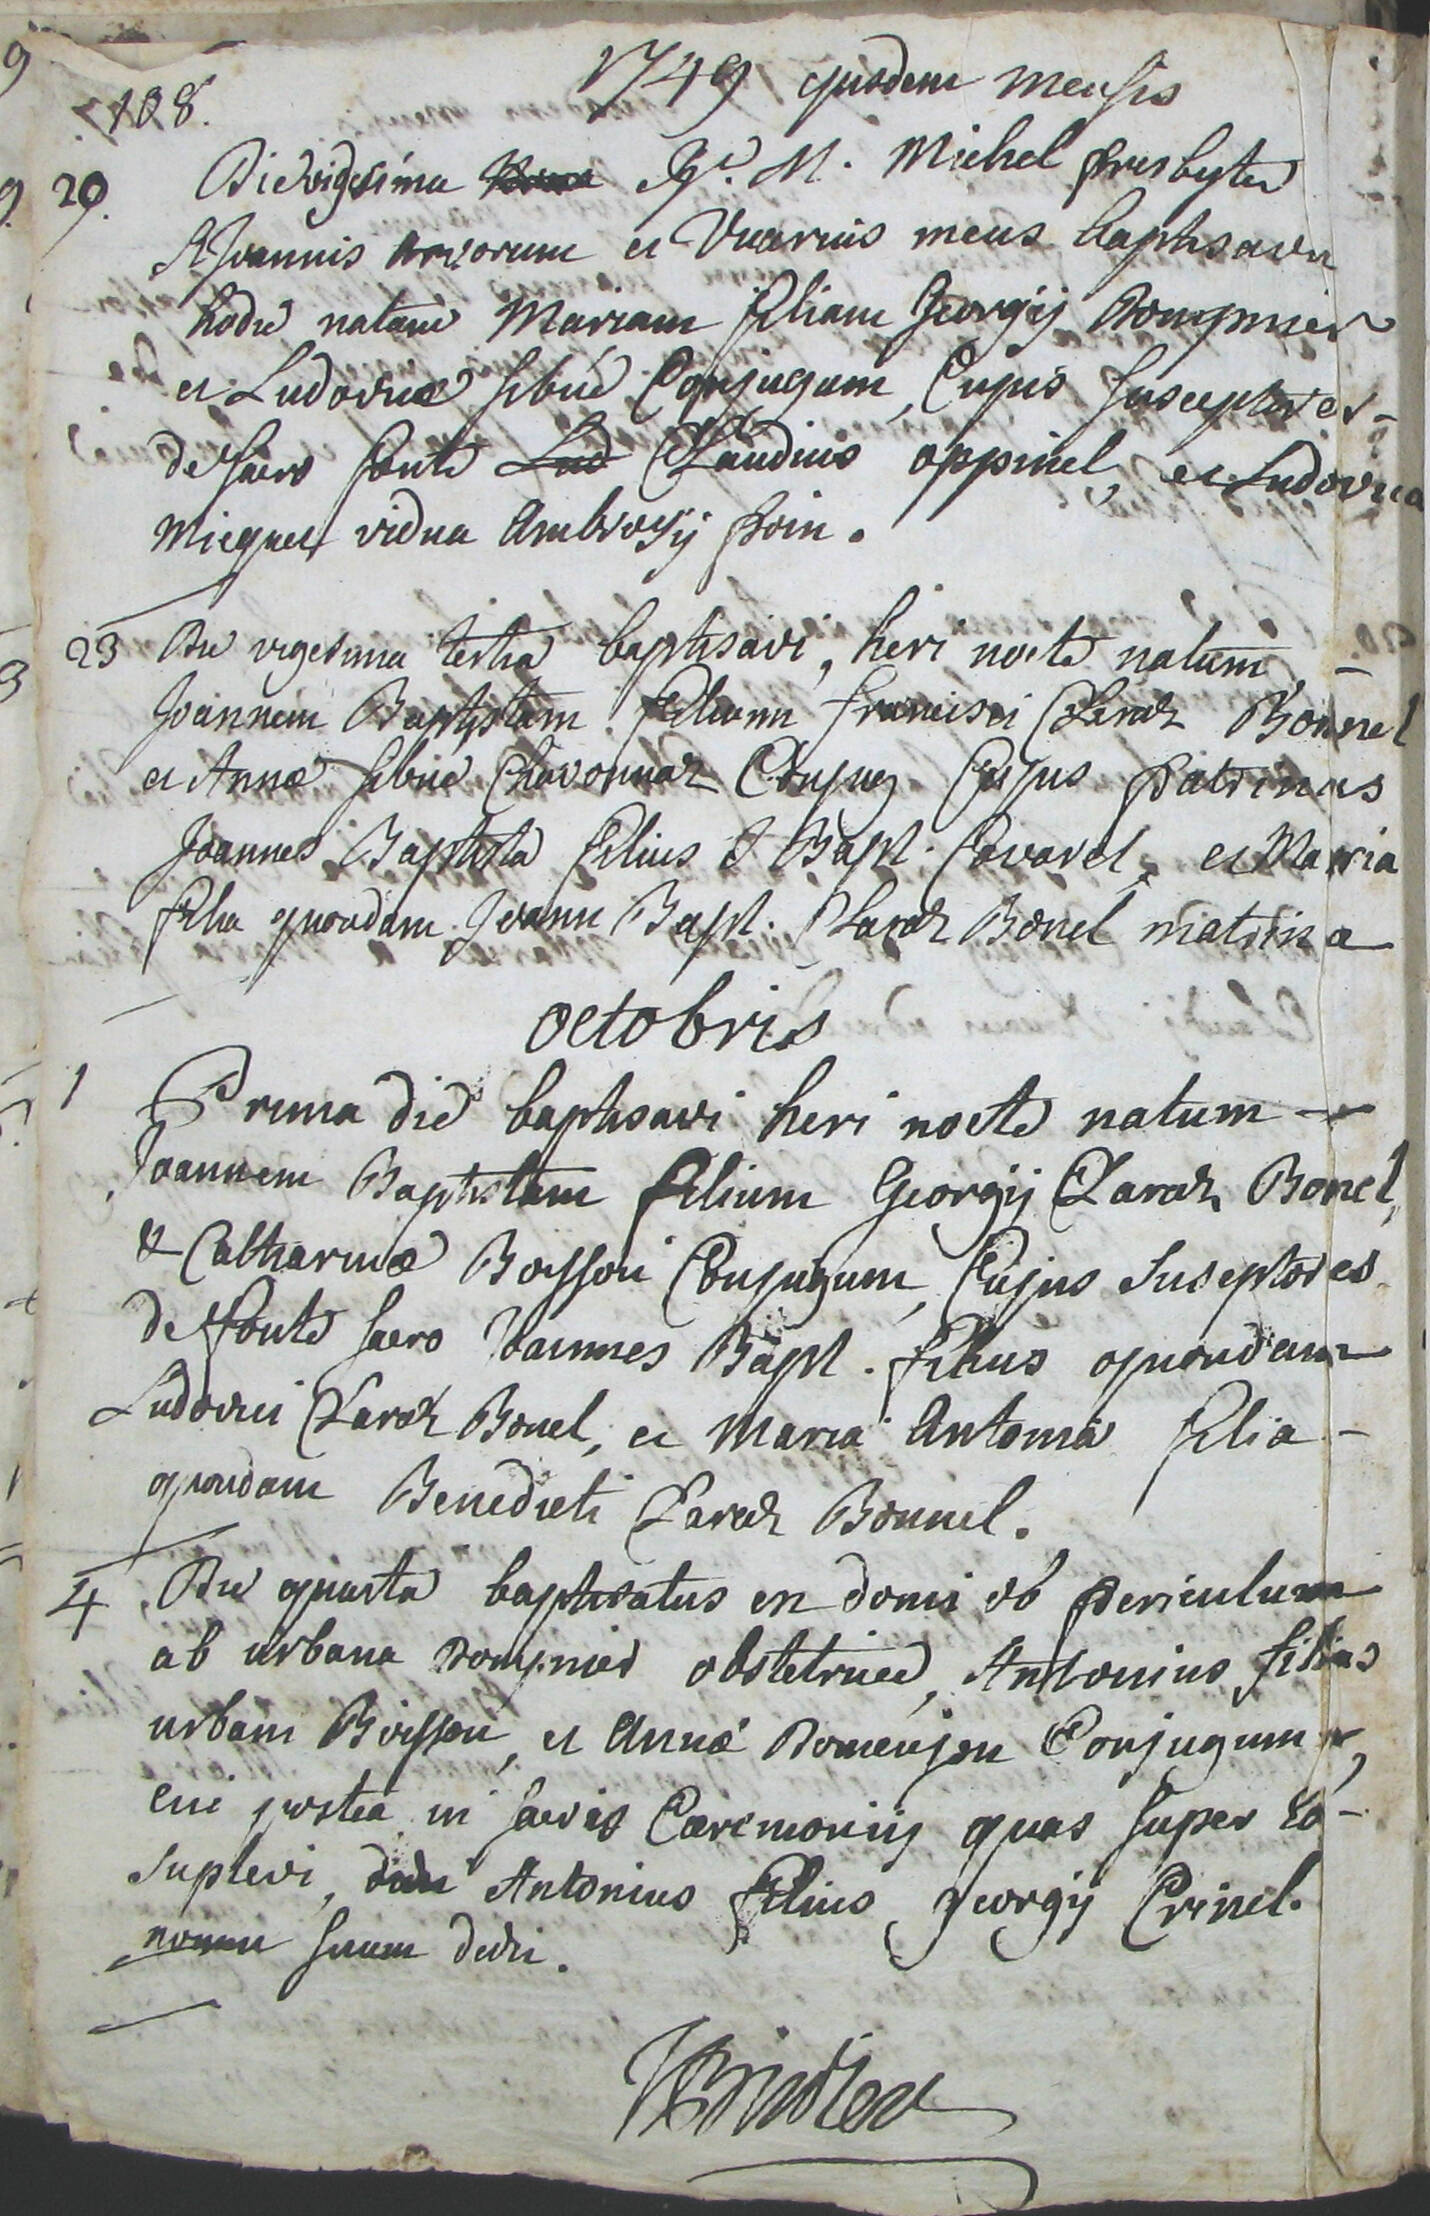 1749 ejusdem mensis
108.
20. Die vigesima Rd. M. Michel presbyter
St Joannis et Vicarius meus baptisavit
hodie natam Mariam filiam Georgij Dompnier
et Ludovicæ Sibué Conjugum, Cujus Susceptores -
de sacro fonte Lud Claudius oppinel, et Ludovica
Micquel vidua Ambrosij Poin.
23 Die vigesima tertia baptisavi, heri nocte natum, -
Joannem Baptistam filium francisci Claraz Bonnel
et Annæ Sibué Chavonnaz Conjug Cujus patrinus
Joannes Baptista filius J Bapt. Covarel, et Maria
filia quondam Joann Bapt. Claraz Bonel matrina
octobris
1 Prima die baptisavi heri nocte natum -
Joannem Baptistam filium Georgij Claraz Bonel,
& Catharinæ Boisson Conjugum, Cujus Susceptores
de fonte sacro Joannes Bapt. filius quondam
Ludovici Claraz Bonel, et Maria Antonia filia -
quondam Benedicti Claraz Bonnel.
4 Die quarta baptisatus en domi ob periculum
ab urbana Dompnier obstetrice, Antonius filius
urbani Boisson, et Annæ Domenjon Conjugum,
cui postea in sacris Cæremoniis quas super eo -
suplevi, Antonius filius Georgij Crinel.
nomen suum dedit.